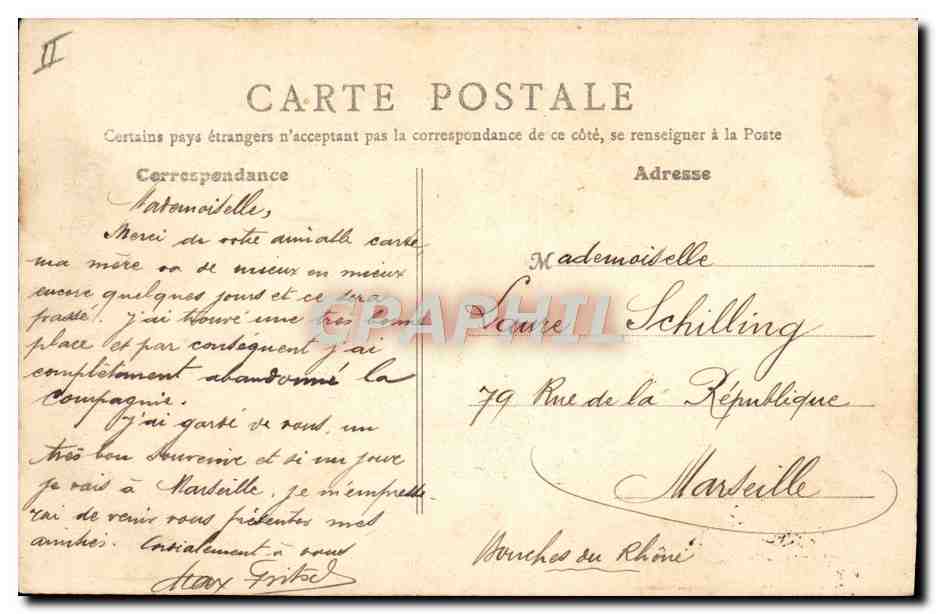 II
CARTE POSTALE
Certains pays étrangers n'acceptant pas la correspondance de ce côté, se renseigner à la Poste
Correspondance
Mademoiselle,
Merci de votre aimable carte
ma mère va de mieux en mieux
encore quelques jours et ce sera
passé. J'ai trouvé une très bonne
place et par conséquent j'ai
complètement abandonné la
Compagnie.
J'ai gardé de vous, un
très bon souvenir et si un jour
je vais à Marseille, je m'empresse
rai de venir vous présenter mes
amitiés. Cordialement à vous
Max Fritsch
Adresse
Mademoiselle
Laure Schilling
79 Rue de la République
Marseille
Bouches du Rhône
CPAPHIL